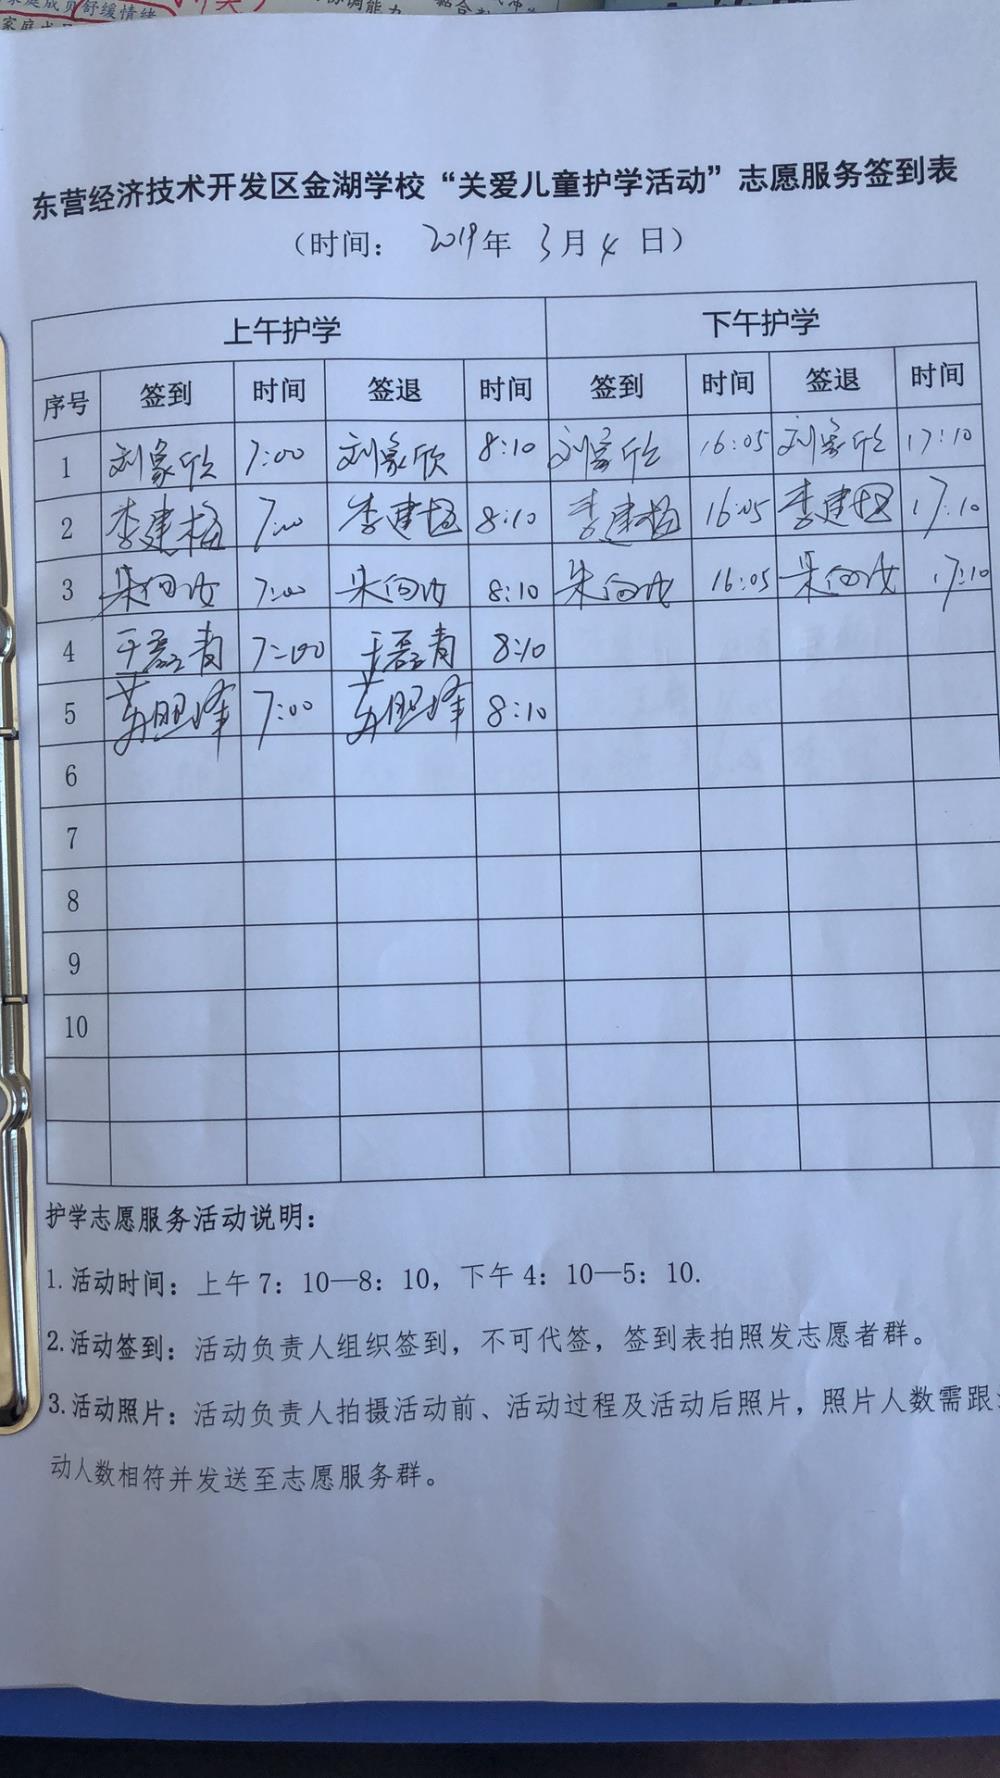 家庭成员舒缓情绪
东营经济技术开发区金湖学校“关爱儿童护学活动”志愿服务签到表
（时间： 2019年 3月4日）
上午护学 下午护学
序号 签到 时间 签退 时间 签到 时间 签退 时间
1 刘家欣 7:00 刘家欣 8:10 刘家欣 16:05 刘家欣 17:10
2 李建梅 7:00 李建梅 8:10 李建梅 16:05 李建梅 17:10
3 7:00 8:10 16:05 17:10
4 王磊青 7:00 王磊青 8:10
5 7:00 8:10
6
7
8
9
10
护学志愿服务活动说明：
1.活动时间：上午7：10—8：10，下午4：10—5：10.
2.活动签到：活动负责人组织签到，不可代签，签到表拍照发志愿者群。
3.活动照片：活动负责人拍摄活动前、活动过程及活动后照片，照片人数需跟
动人数相符并发送至志愿服务群。